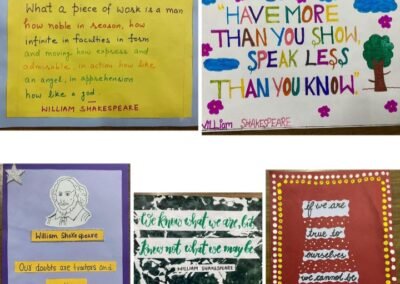 What a piece of work is a man
how noble in reason, how
infinite in faculties in form
and moving how express and
admirable, in action how like
an angel, in apprehension
how like a god.
WILLIAM SHAKESPEARE
"HAVE MORE
THAN YOU SHOW,
SPEAK LESS
THAN YOU KNOW."
William SHAKESPEARE
William Shakespeare
Our doubts are traitors and
We know what we are, but
Know not what we may be
WILLIAM SHAKESPEARE
if we are
true to
ourselves
we cannot be